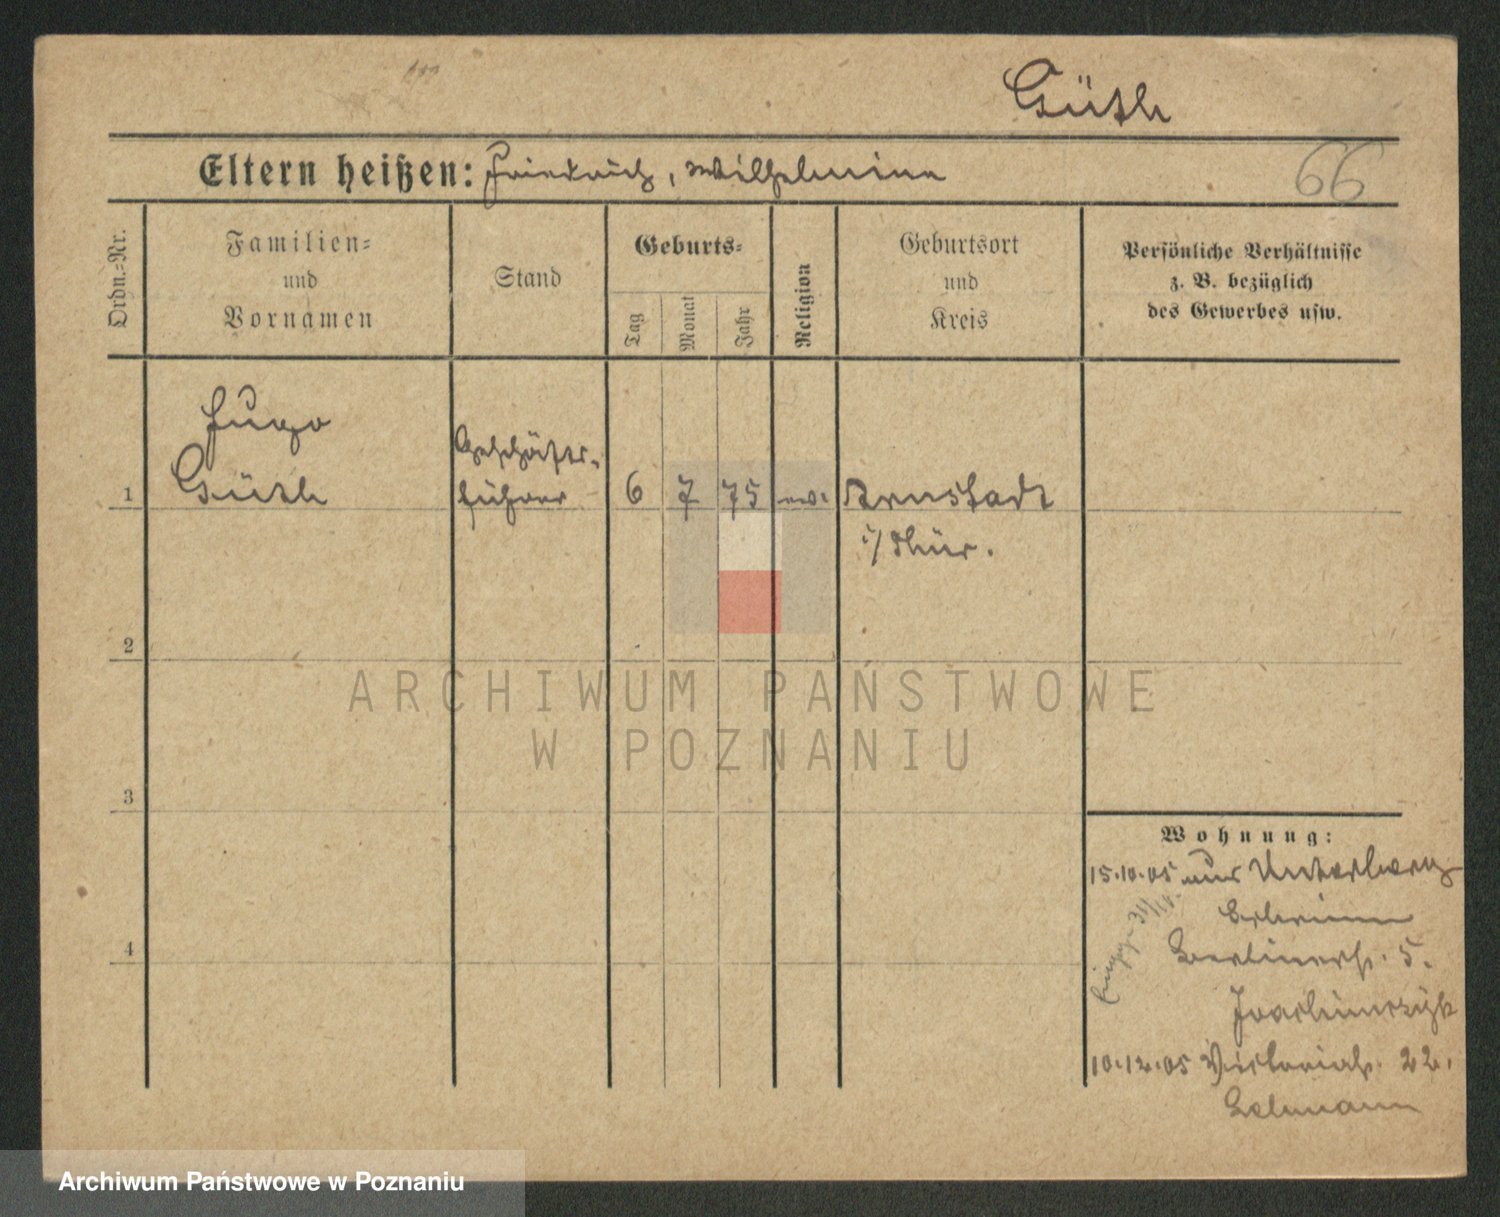 Güth
Eltern heißen: Friedrich, Wilhelmine
66
Ordn.-Nr.
Familien-
und
Vornamen
Stand
Geburts-
Tag
Monat
Jahr
Religion
Geburtsort
und
Kreis
Persönliche Verhältnisse
z. B. bezüglich
des Gewerbes usw.
Hugo
Güth
Geschäfts-
führer
1
6
7
75
ev.
Arnstadt
i/Thür.
2
3
4
ARCHIWUM PAŃSTWOWE
W POZNANIU
Wohnung:
15.10.05 aus Unterberg
Berlinerstr. 5.
10.12.05 Victoriastr. 22.
Archiwum Państwowe w Poznaniu